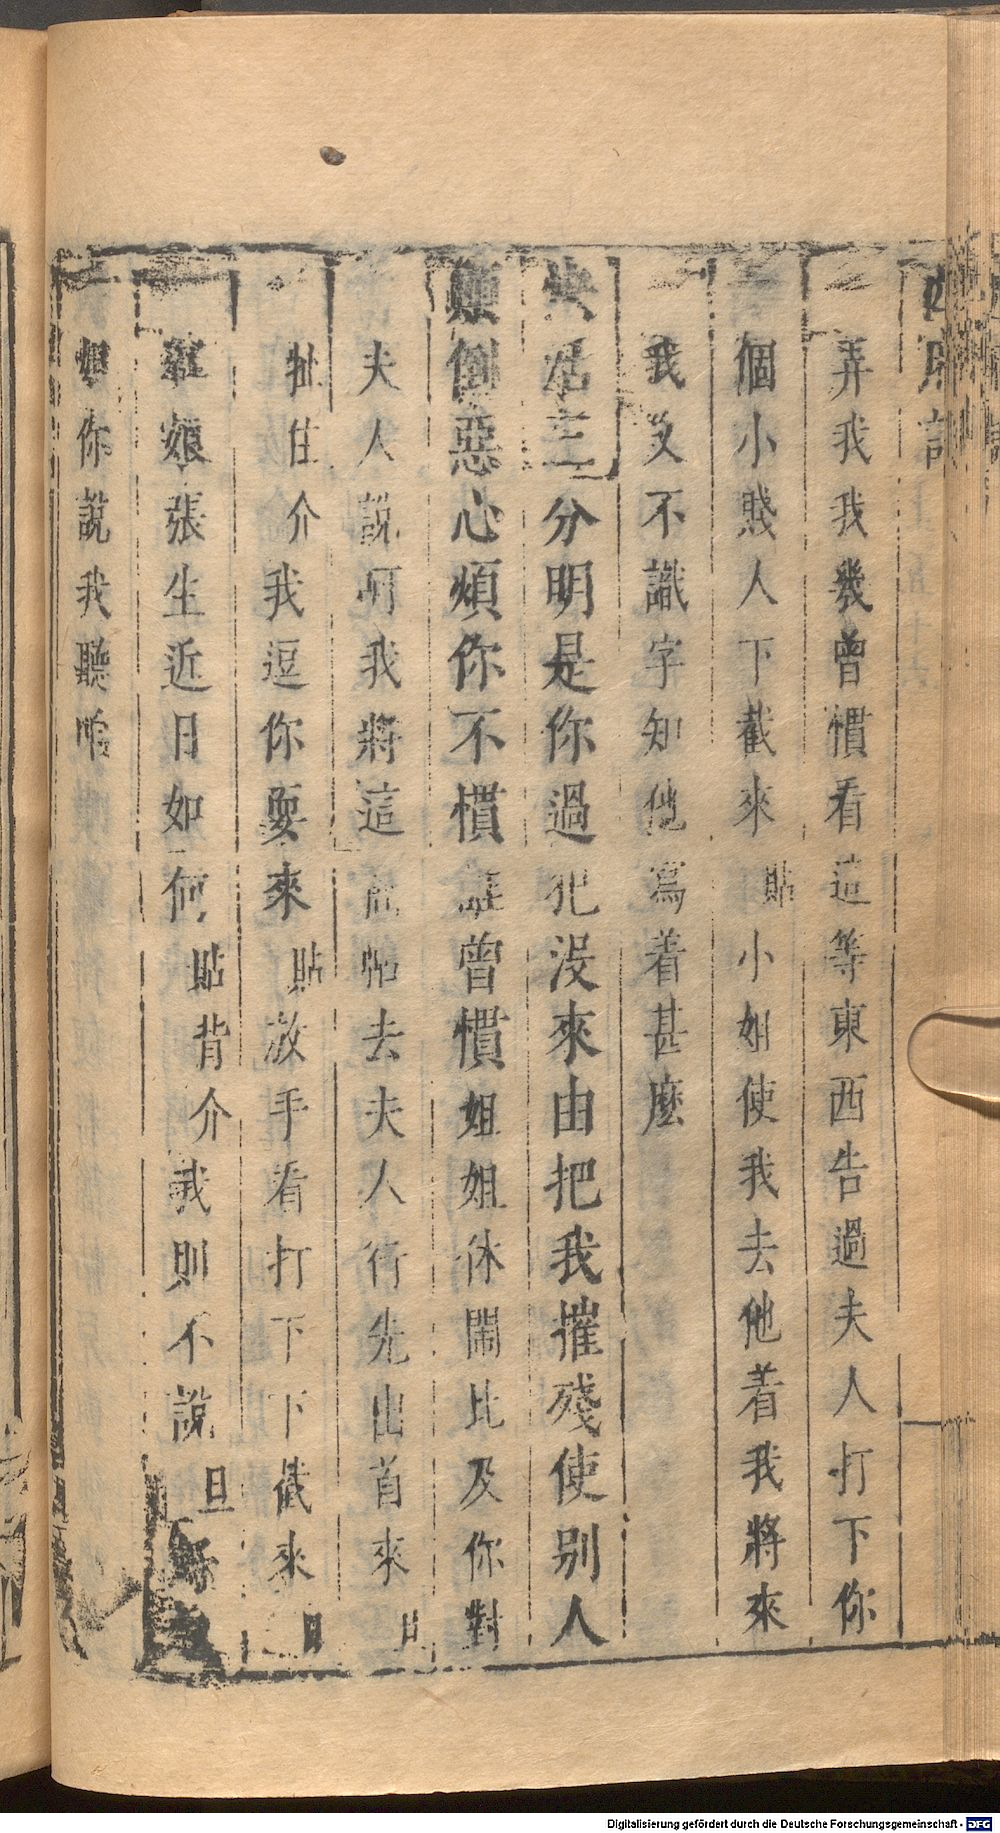 西廂記
弄我我幾曾慣看這等東西告過夫人打下你
個小賤人下截來貼小姐使我去他着我將來
我又不識字知他寫着甚麼
快活三分明是你過犯没來由把我摧殘使別人
顛倒惡心煩你不慣誰曾慣姐姐休鬧比及你對
夫人說呵我將這簡帖去夫人行先出首來旦
扯住介我逗你耍來貼放手看打下下截來旦
紅娘張生近日如何貼背介我則不說旦好
姐你說我聽咱
Digitalisierung gefördert durch die Deutsche Forschungsgemeinschaft - DFG